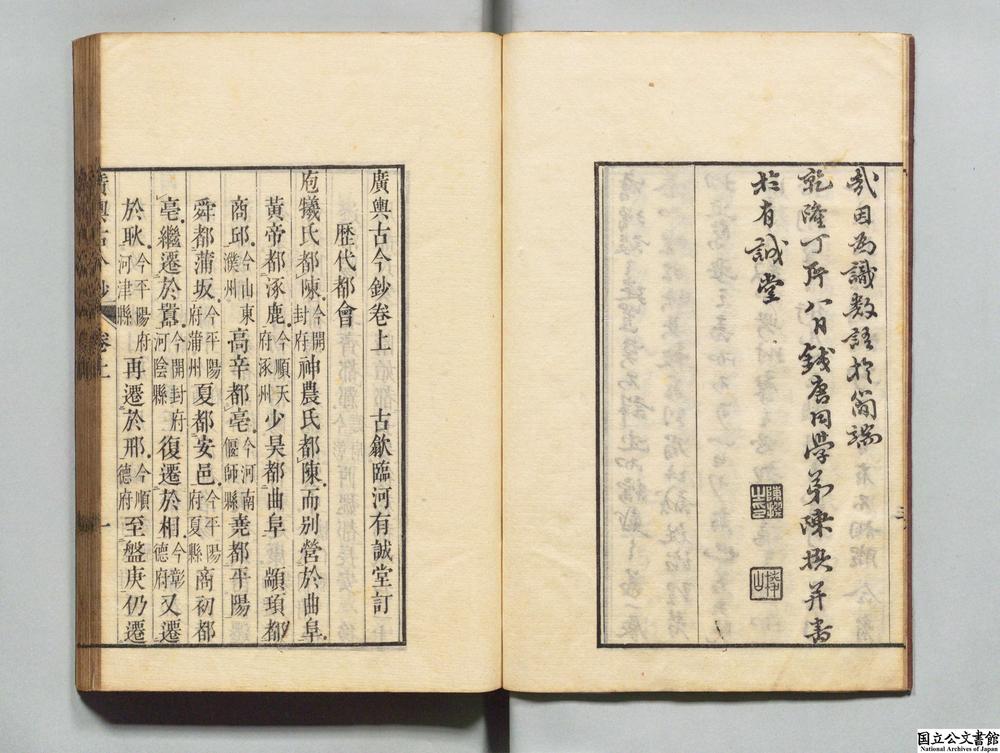 哉因為識數語於簡端
乾隆丁所八月錢唐同學弟陳撰并書
於有誠堂
廣輿古今鈔卷上 古歙臨河有誠堂訂
歷代都會
庖犧氏都陳今開封府神農氏都陳而别營於曲阜
黃帝都涿鹿今順天府涿州少昊都曲阜顓頊都
商邱今山東濮州高辛都亳今河南偃師縣堯都平陽
舜都蒲坂今平陽府蒲州夏都安邑今平陽府夏縣商初都
亳繼遷於囂今開封府河陰縣復遷於相今彰德府又遷
於耿今平陽府河津縣再遷於邢今順德府至盤庚仍遷
廣輿古今鈔 卷上 一
国立公文書館
National Archives of Japan